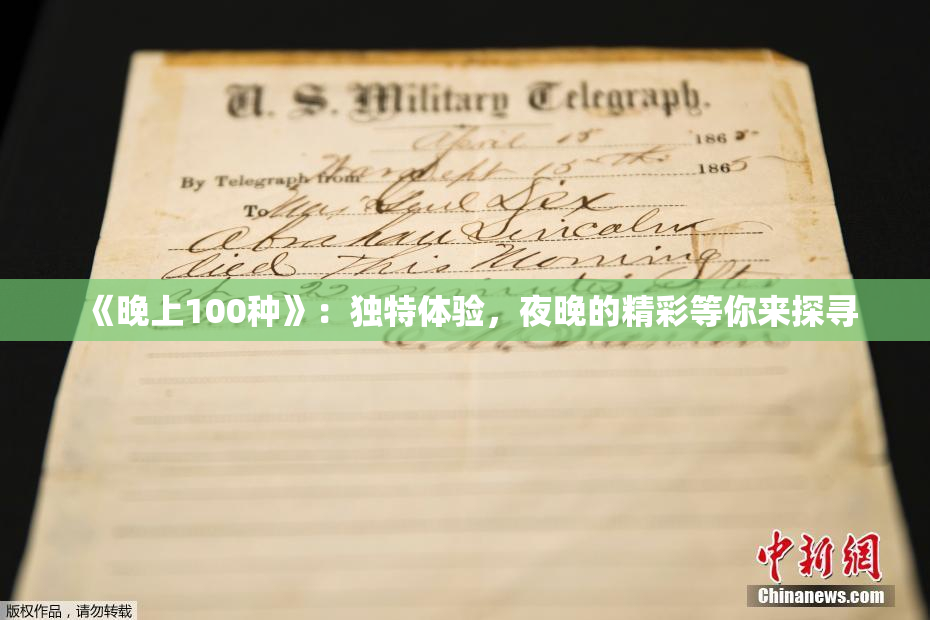 U. S. Military Telegraph.
April 15 1865
By Telegraph from War Dept 15th 1865
To Maj Genl Dix
Abraham Lincoln
died This Morning
22 minutes after
《晚上100种》：独特体验，夜晚的精彩等你来探寻
E. M. Stanton
中新网
Chinanews.com
版权作品，请勿转载